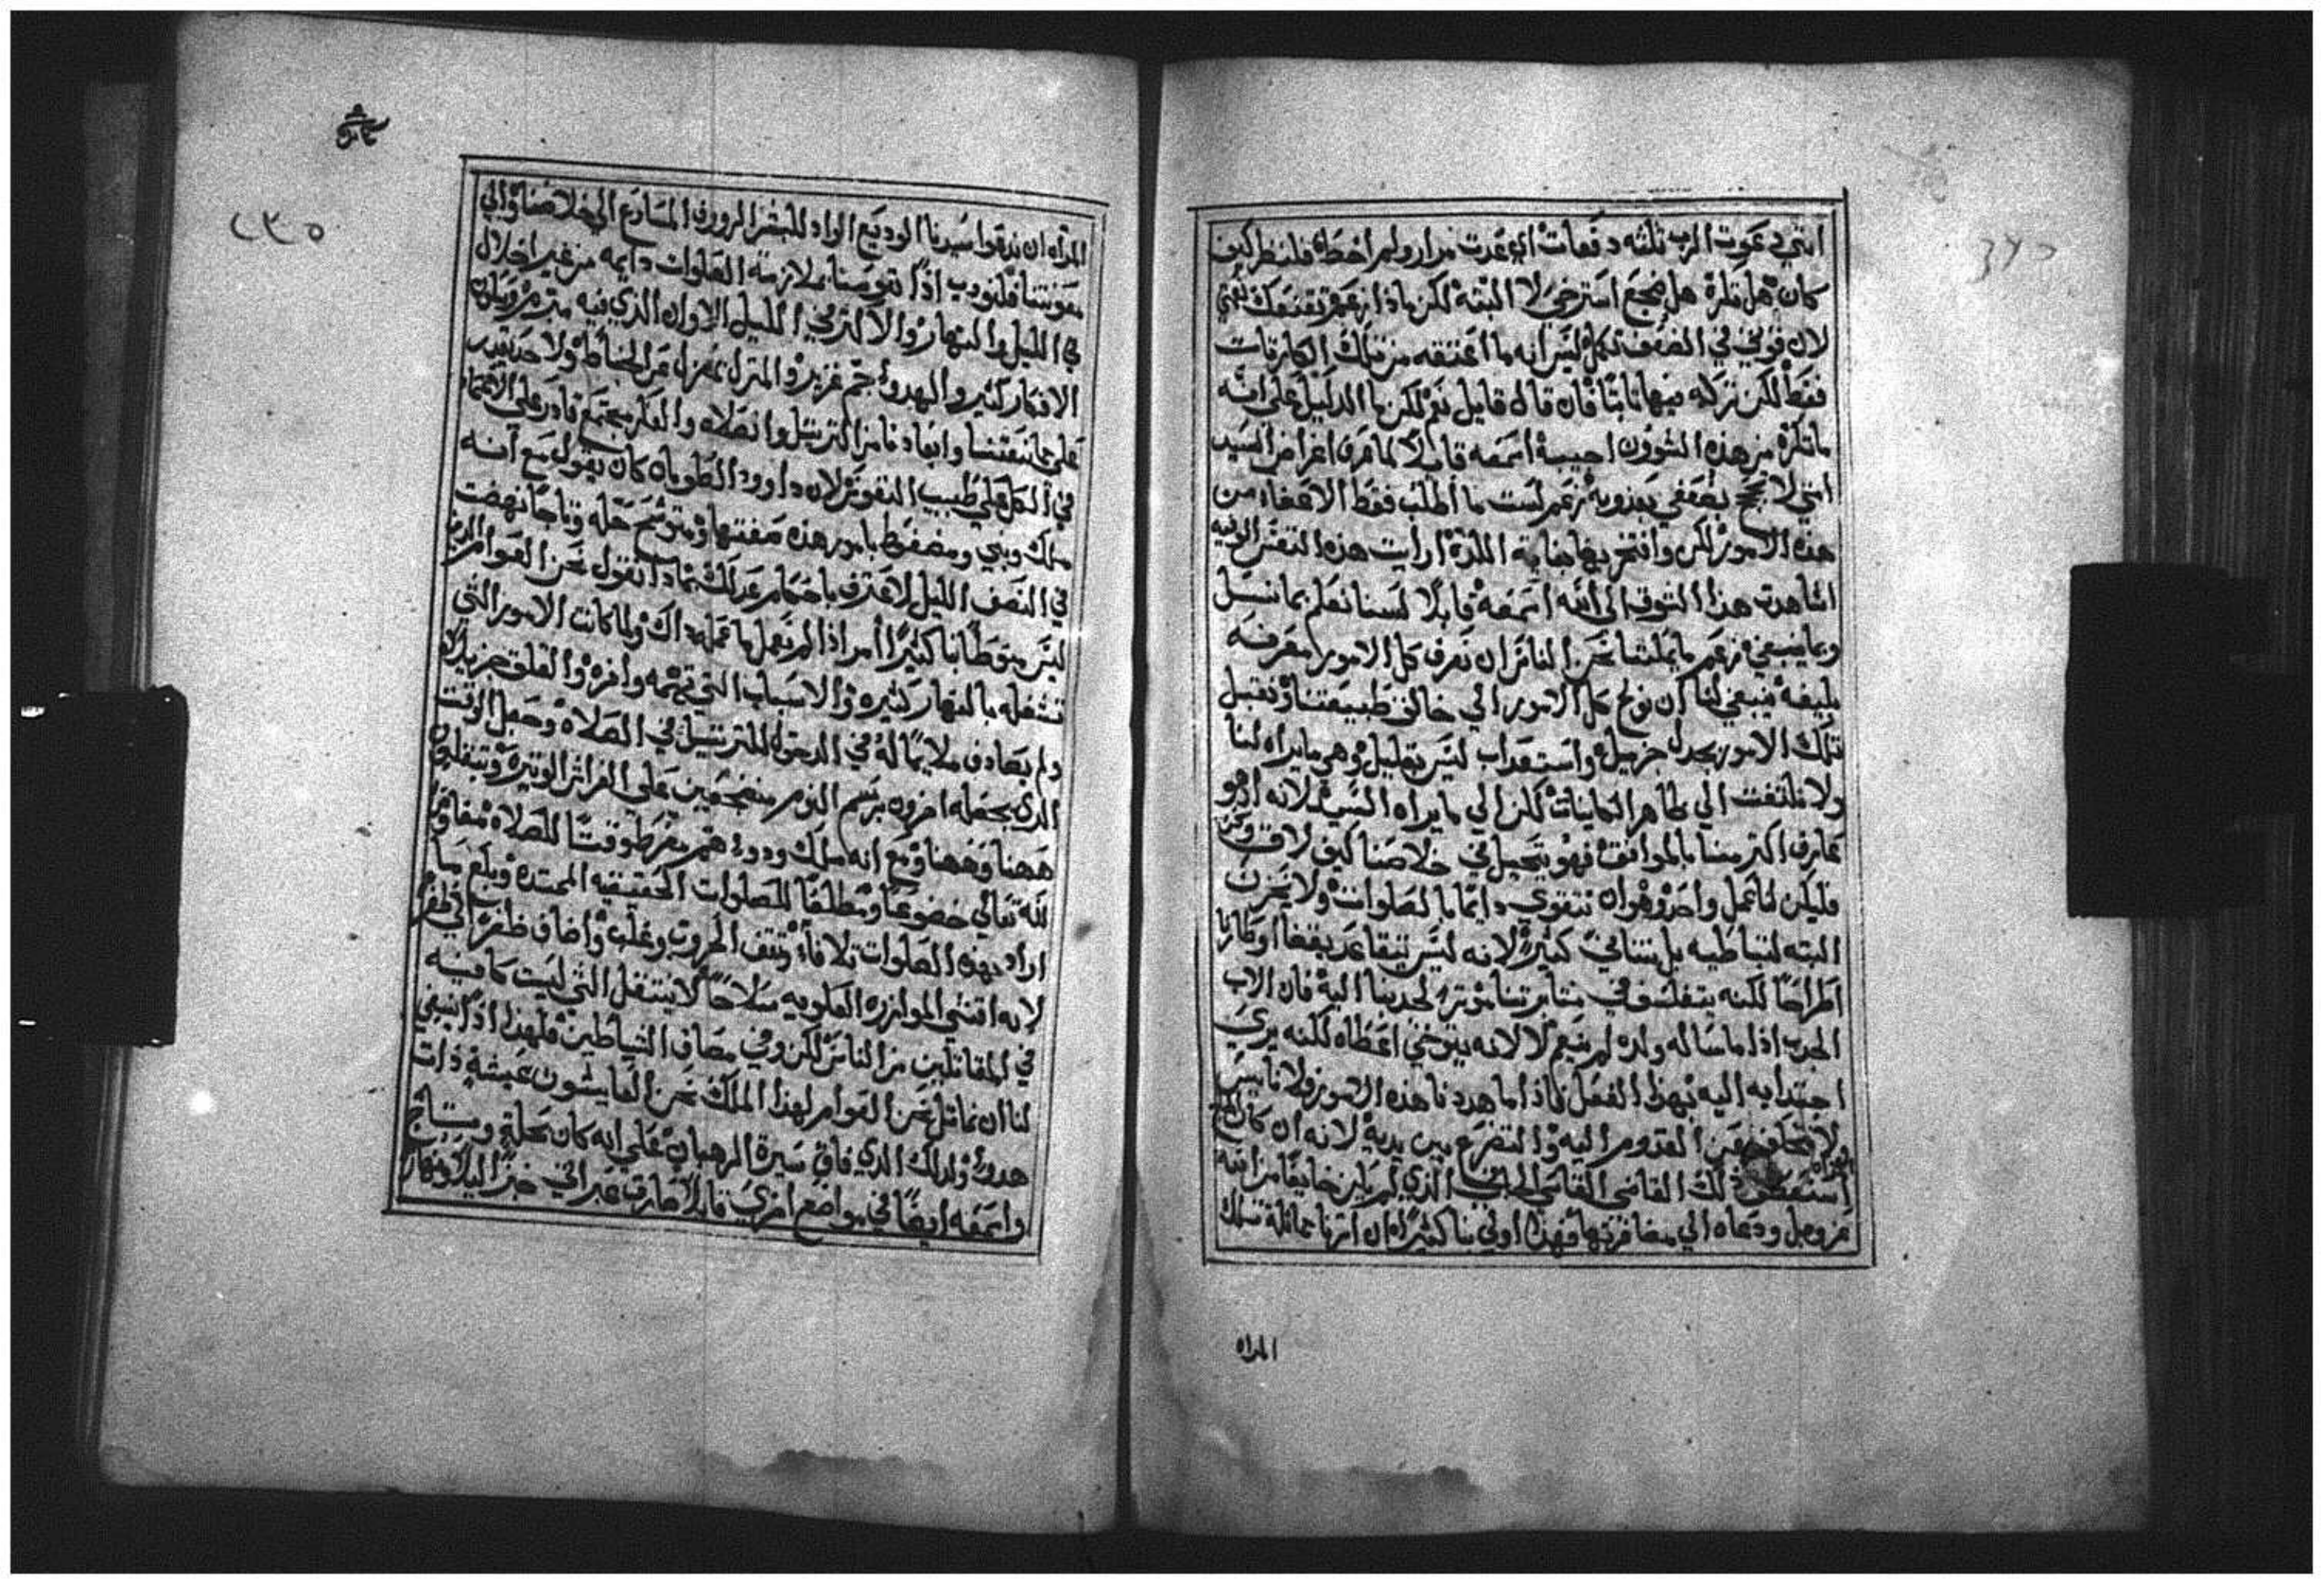 انني دعوت الرب ثلثه دفعات اي عدت مرار ولم احظا فلننظر كيف
كان هل تكره هل ضجع استرخي لا البته لكن ماذا زعم تقنعك نعمتي
لان قوتي في الضعف تكمل ليس انه ما اعتقه من تلك الكارثات
فقط لكن تركه فيها ثابتا فان قال قايل نعم لكن ما الدليل علي انه
ما تكره من هذه الشوون اجيبه اسمعه قايلا لما عرف اغراض السيد
انني لا بضعفي بعذوبه زعم لست ما اطلب فقط الاعفاء من
هذه الامور لكن وافتخر بها بلذه ارايت هذه النفس الوفيه
اشاهدت هذا الشوق الي الله اسمعه قايلا لسنا نعلم بما نسل
وما ينبغي زعم ما يمكننا نحن الناس ان نعرف كل الامور معرفه
بليغه فينبغي لنا ان نودع كل الامور الي خالق طبيعتنا ونقبل
تلك الامور بجدل جزيل واستعداب ليس بقليل وهي ما يراه لنا
ولا نلتفت الي ظاهر الكاينات لكن الي ما يراه السيد لانه اذ هو
عارف اكثر منا بالموافق فهو يتحيل في خلاصنا كيف لاق
فليكن لنا عمل واحد وهو ان نتقوي دايما بالصلوات ولا نحزن
البته لتباطيه بل نتاني كثيرا لانه ليس يتقاعد بقضا اوطارنا
اطراحا لكنه يتفلسف في مثابرتنا موثرا لجدبنا اليه فان الاب
المحب اذا ما ساله ولده لم ينعم لا لانه يتوخي اعطاه لكنه يري
اجتدابه اليه بهذا الفعل فاذا ما هددنا هذه الامور فلا نايس
ولا نتخلف عن القدوم اليه والتضرع بين يديه لانه ان كان
استعطف ذلك القاضي القاسي الذي لم يكن خايفا من الله
عز وجل ودعاه الي مضافرتها فهذا اولي بنا كثيرا ان اثرنا مماثلة تلك
المراه
المراه ان ندعوا سيدنا الوديع الواد للبشر الروووف المسارع الي خلاصنا والي
معونتنا فلنودب اذا نفوسنا بملازمة الصلوات دايمه من غير اخلال
في الليل والنهار والاكثر في الليل الاوان الذي فيه
الافكار كثير والهدو جم غزير والمنزل بمعزل عن ولا احد يقدر
علي ممانعتنا وابعادنا من الترتيل والصلاه والفكر مجتمع قادر علي الاعتماد
في الكل علي طبيب النفوس لان داوود الطوباه كان يقول مع انه
ملك ونبي ومضغوط بامور هذه صفتها ومتوشح حله وتاجا نهضت
في النصف الليل لاعترف باحكام عدلك بماذا نقول نحن العوام الذين
ليس متوطا بنا كثيرا امر اذا لم نعمل ما عمله داك ولما كانت الامور التي
تشغله بالنهار كثيره والاسباب التي تهمه وافره والقلق جزيلا
ولم يصادف ملايما له في الدخول للترتيل في الصلاه وجعل الوقت
الذي يجعله اخرون برسم النوم منضجعين علي الفراش الوتيره ويتقلبون
ههنا وههنا ومع انه ملك ودوو هم مفرط وقتا للصلاه
لله تعالي خضوعا ومطلقا للصلوات الحقيقيه الممتده وبلغ ما
اراد بهذه الصلوات تلافاه وثقف الحروب وغلب واضاف ظفرا الي ظفر
لانه اقتني الموازره العلويه سلاحا لا ينتقل التي ليست كافيه
في المقاتلين من الناس لكن وفي مصاف الشياطين فلهذا اذا ينبغي
لنا ان نماثل نحن العوام لهذا الملك نحن العايشون عيشه ذات
هدوا ولدلك الذي فاق سيرة الرهبان علي انه كان بحله وبتاج
واسمعه ايضا في مواضع اخري قايلا صارت عبراتي خبزا ليلا ونهارا
٢٣٥